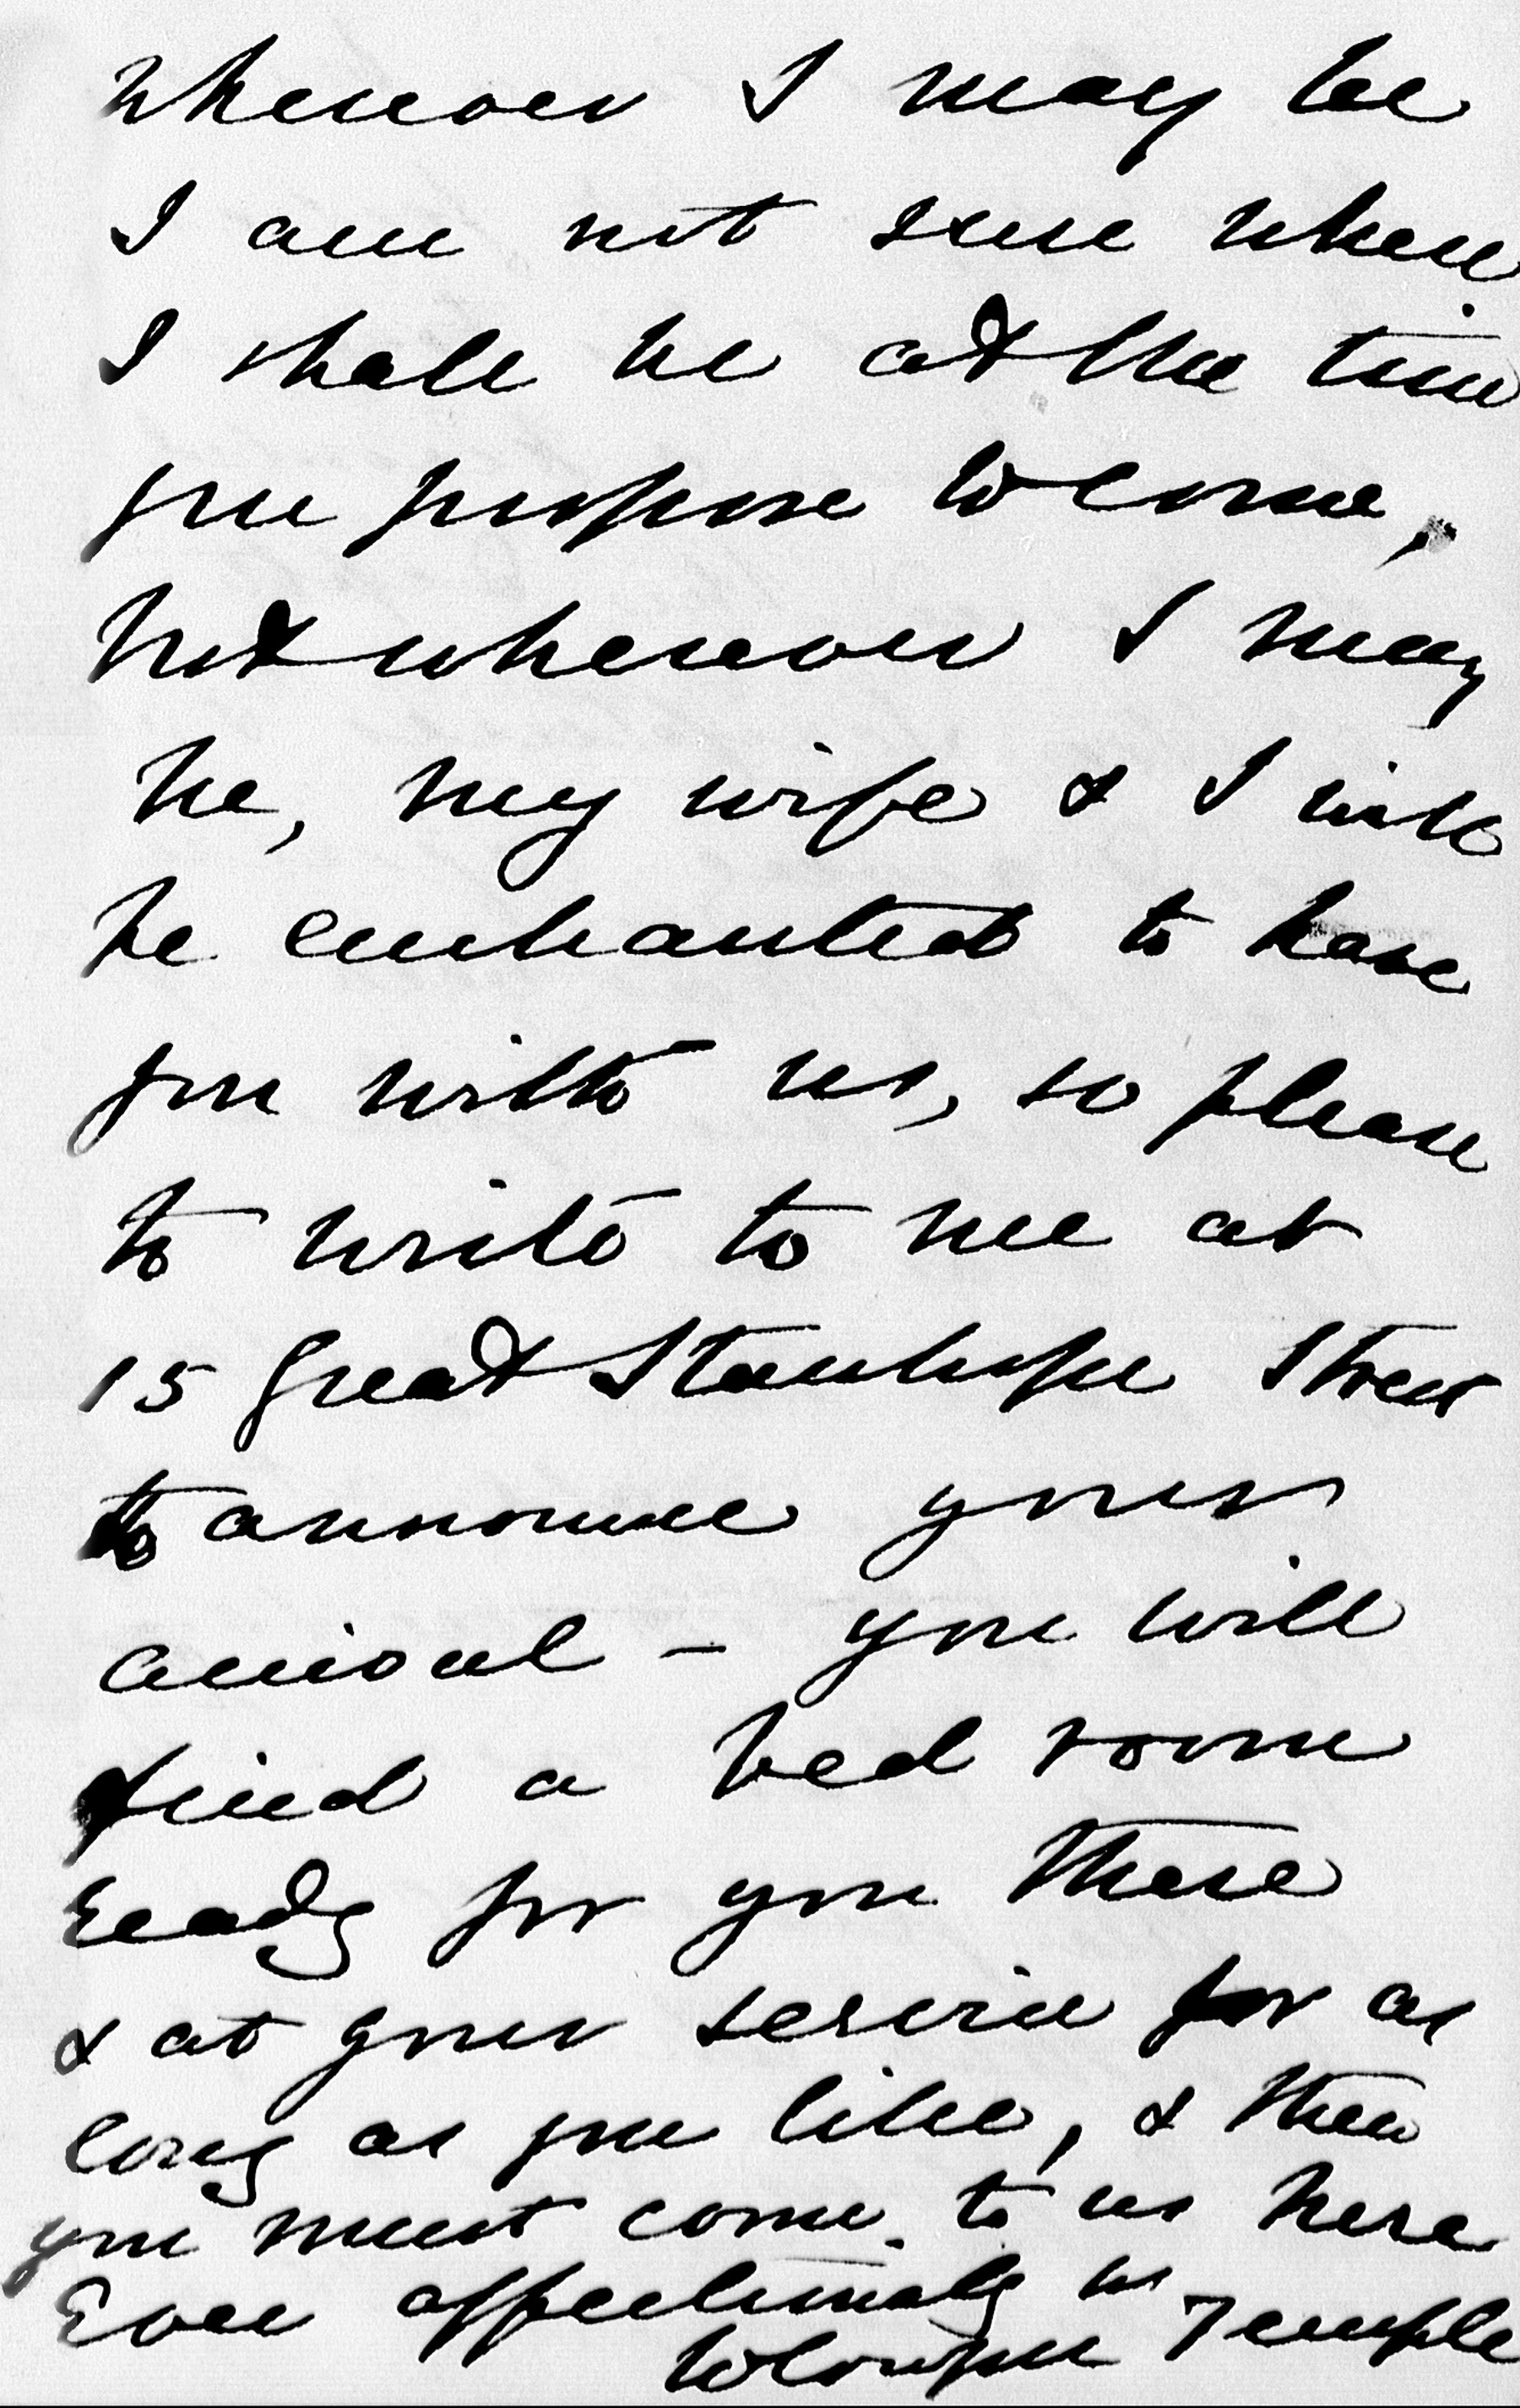 wherever I may be
I am not sure where
I shall be at the time
you propose to come,
but wherever I may
be, my wife & I will
be enchanted to have
you with us, so please
to write to me at
15 Great Stanhope Street
to announce your
arrival - you will
find a bed room
ready for you there
& at your service for as
long as you like, & then
you must come to us here
Ever affectionately
W Cowper Temple